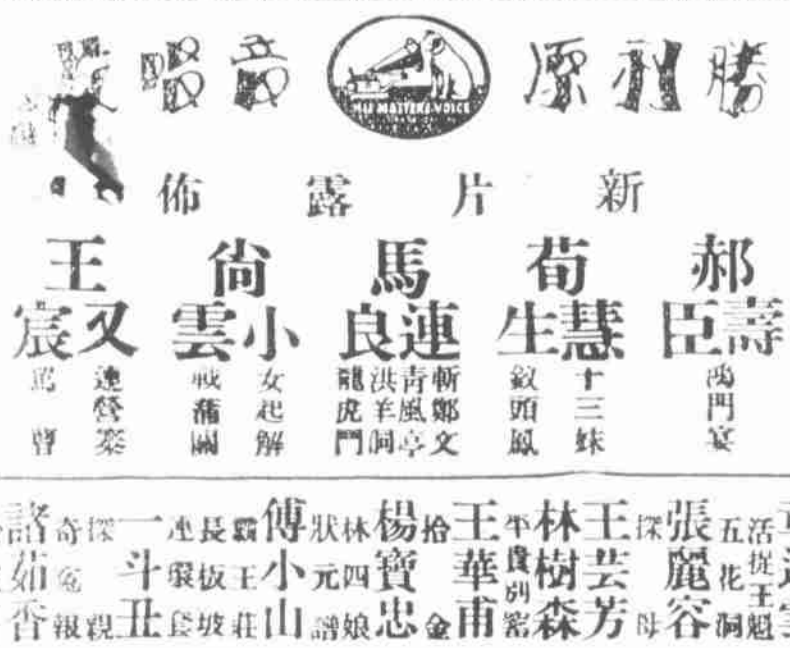 勝利原音唱
HIS MASTERS VOICE
新片露佈
郝壽臣
鴻門宴
荀慧生
十三妹
釵頭鳳
馬連良
斬鄭文
青風亭
洪羊洞
龍虎門
尙小雲
女起解
戰蒲關
王又宸
連營寨
罵曹
活捉王魁
五花洞
張麗容
探母
王芸芳
林樹森
平貴別窰
王華甫
拾金
楊寶忠
林四娘
狀元譜
傅小山
霸王莊
長坂坡
連環套
一斗丑
探親
奇冤報
諸茹香